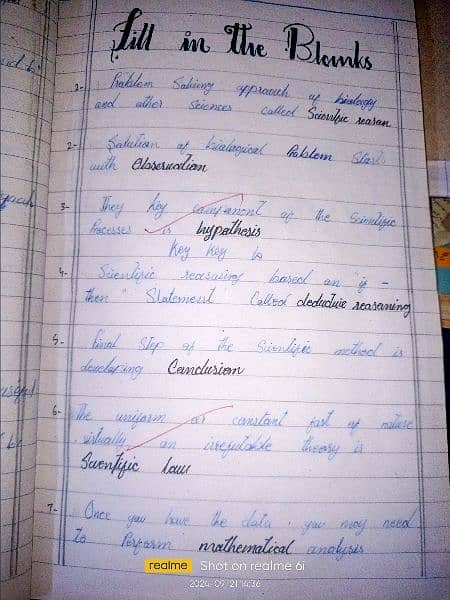 Fill in the Blanks
1- Problem Solving approach of biology
and other Sciences called Scientific reason
2- Solution of biological Problem Starts
with Observation
3- They key component of the Scientific
Processes is hypothesis
Key Key
4- Scientific reasoning based on "if -
then" Statement Called deductive reasoning
5- final Step of the Scientific method is
developing Conclusion
6- The uniform or constant fact of nature
virtually an irrefutable theory is
Scientific law
7- Once you have the data, you may need
to Perform mathematical analysis
realme Shot on realme 6i
2024-09-21 14:36